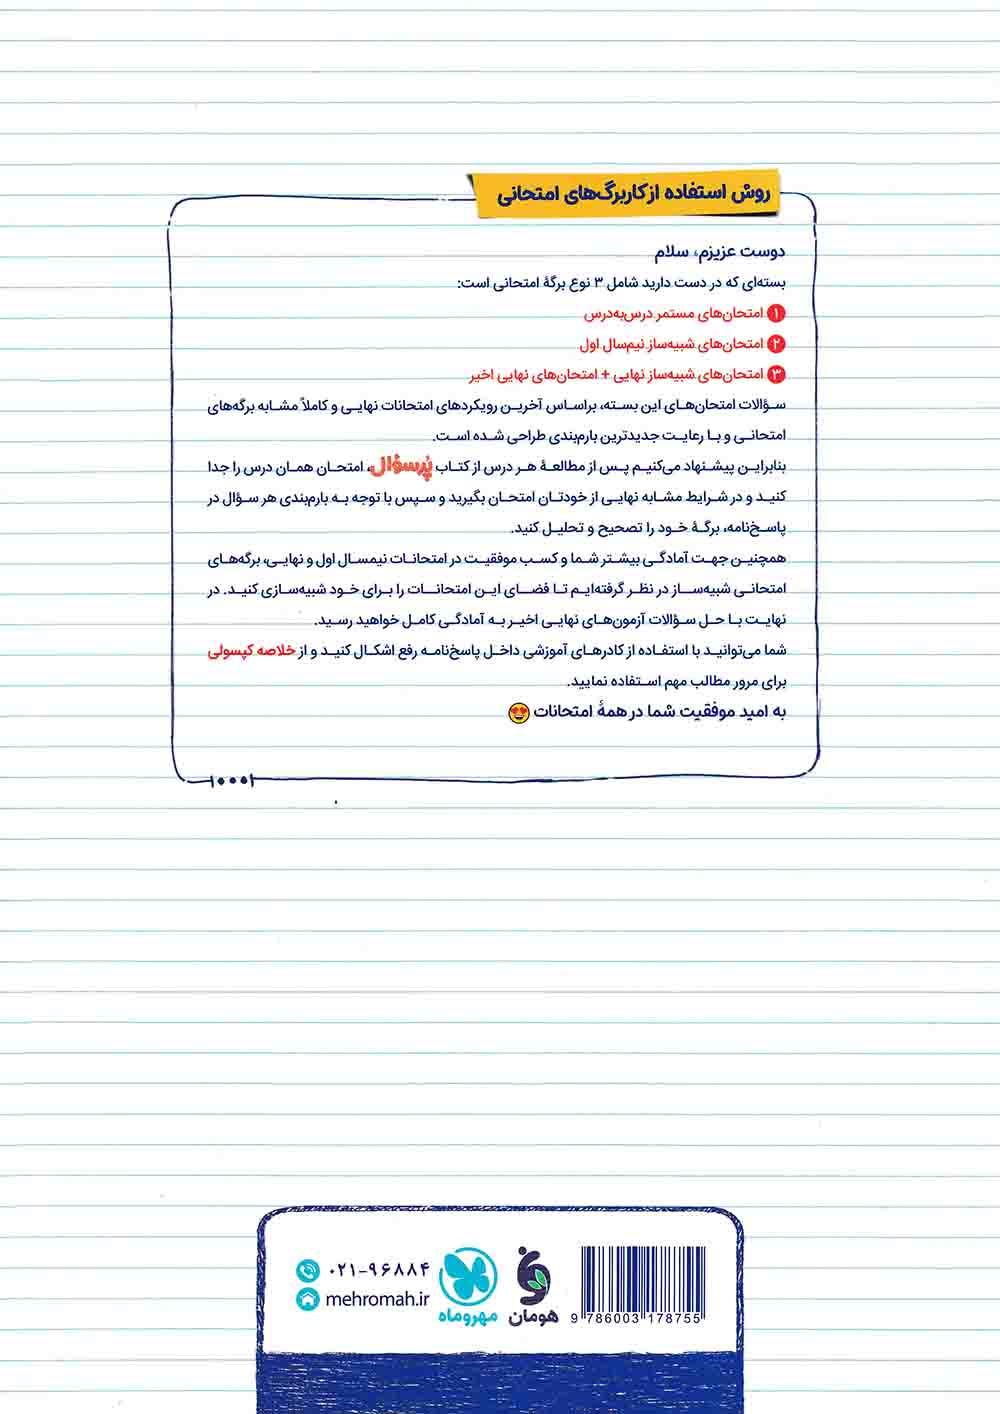 روش استفاده از کاربرگ‌های امتحانی
دوست عزیزم، سلام
بسته‌ای که در دست دارید شامل ۳ نوع برگهٔ امتحانی است:
۱ امتحان‌های مستمر درس‌به‌درس
۲ امتحان‌های شبیه‌ساز نیم‌سال اول
۳ امتحان‌های شبیه‌ساز نهایی + امتحان‌های نهایی اخیر
سؤالات امتحان‌های این بسته، براساس آخرین رویکردهای امتحانات نهایی و کاملاً مشابه برگه‌های
امتحانی و با رعایت جدیدترین بارم‌بندی طراحی شده است.
بنابراین پیشنهاد می‌کنیم پس از مطالعهٔ هر درس از کتاب پُرسؤال، امتحان همان درس را جدا
کنید و در شرایط مشابه نهایی از خودتان امتحان بگیرید و سپس با توجه به بارم‌بندی هر سؤال در
پاسخ‌نامه، برگهٔ خود را تصحیح و تحلیل کنید.
همچنین جهت آمادگی بیشتر شما و کسب موفقیت در امتحانات نیمسال اول و نهایی، برگه‌های
امتحانی شبیه‌ساز در نظر گرفته‌ایم تا فضای این امتحانات را برای خود شبیه‌سازی کنید. در
نهایت با حل سؤالات آزمون‌های نهایی اخیر به آمادگی کامل خواهید رسید.
شما می‌توانید با استفاده از کادرهای آموزشی داخل پاسخ‌نامه رفع اشکال کنید و از خلاصه کپسولی
برای مرور مطالب مهم استفاده نمایید.
به امید موفقیت شما در همهٔ امتحانات 😍
۰۲۱-۹۶۸۸۴
mehromah.ir
مهروماه
هومان
9 786003 178755